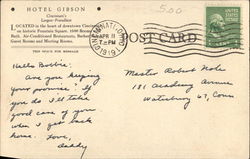 HOTEL GIBSON
Cincinnati's
Largest—Foremost
LOCATED in the heart of downtown Cincinnati
on historic Fountain Square. 1000 Rooms
Bath. Air-Conditioned Restaurants,
Guest Rooms and Meeting Rooms.
THIS SPACE FOR MESSAGE
5.00
CINCINNATI, OHIO
APR 11
7 PM
POST CARD
Hello Bobbie:
Are you keeping
your promise? If
you do I'll take
good care of you
when I get back
home. Love,
Daddy
Master Robert
181 Academy Avenue
Waterbury 67, Conn